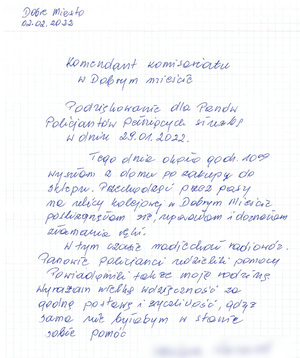 Dobre Miasto
02.02.2022
Komendant komisariatu
w Dobrym mieście
Podziękowanie dla Panów
Policjantów pełniących służbę
w dniu 29.01.2022.
Tego dnia około godz. 10⁰⁰
wyszłam z domu po zakupy do
sklepu. Przechodząc przez pasy
na ulicy kolejowej w Dobrym Mieście
pośliznęłam się, upadłam i doznałam
złamania ręki.
W tym czasie nadjechał radiowóz.
Panowie policjanci udzielili pomocy
Powiadomili także moją rodzinę
Wyrażam wielką wdzięczność za
godną postawę i życzliwość, gdyż
sama nie byłabym w stanie
sobie pomóc